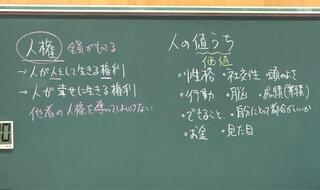 人権 全員がもってる
→人が人として生きる権利
→人が幸せに生きる権利
他者の人権を奪ってはいけない
人の値うち
価値
・性格 ・社交性 ・頭のよさ
・行動 ・脳 ・成績(実績)
・できること ・自分にとって都合がいいか
・お金 ・見た目
10